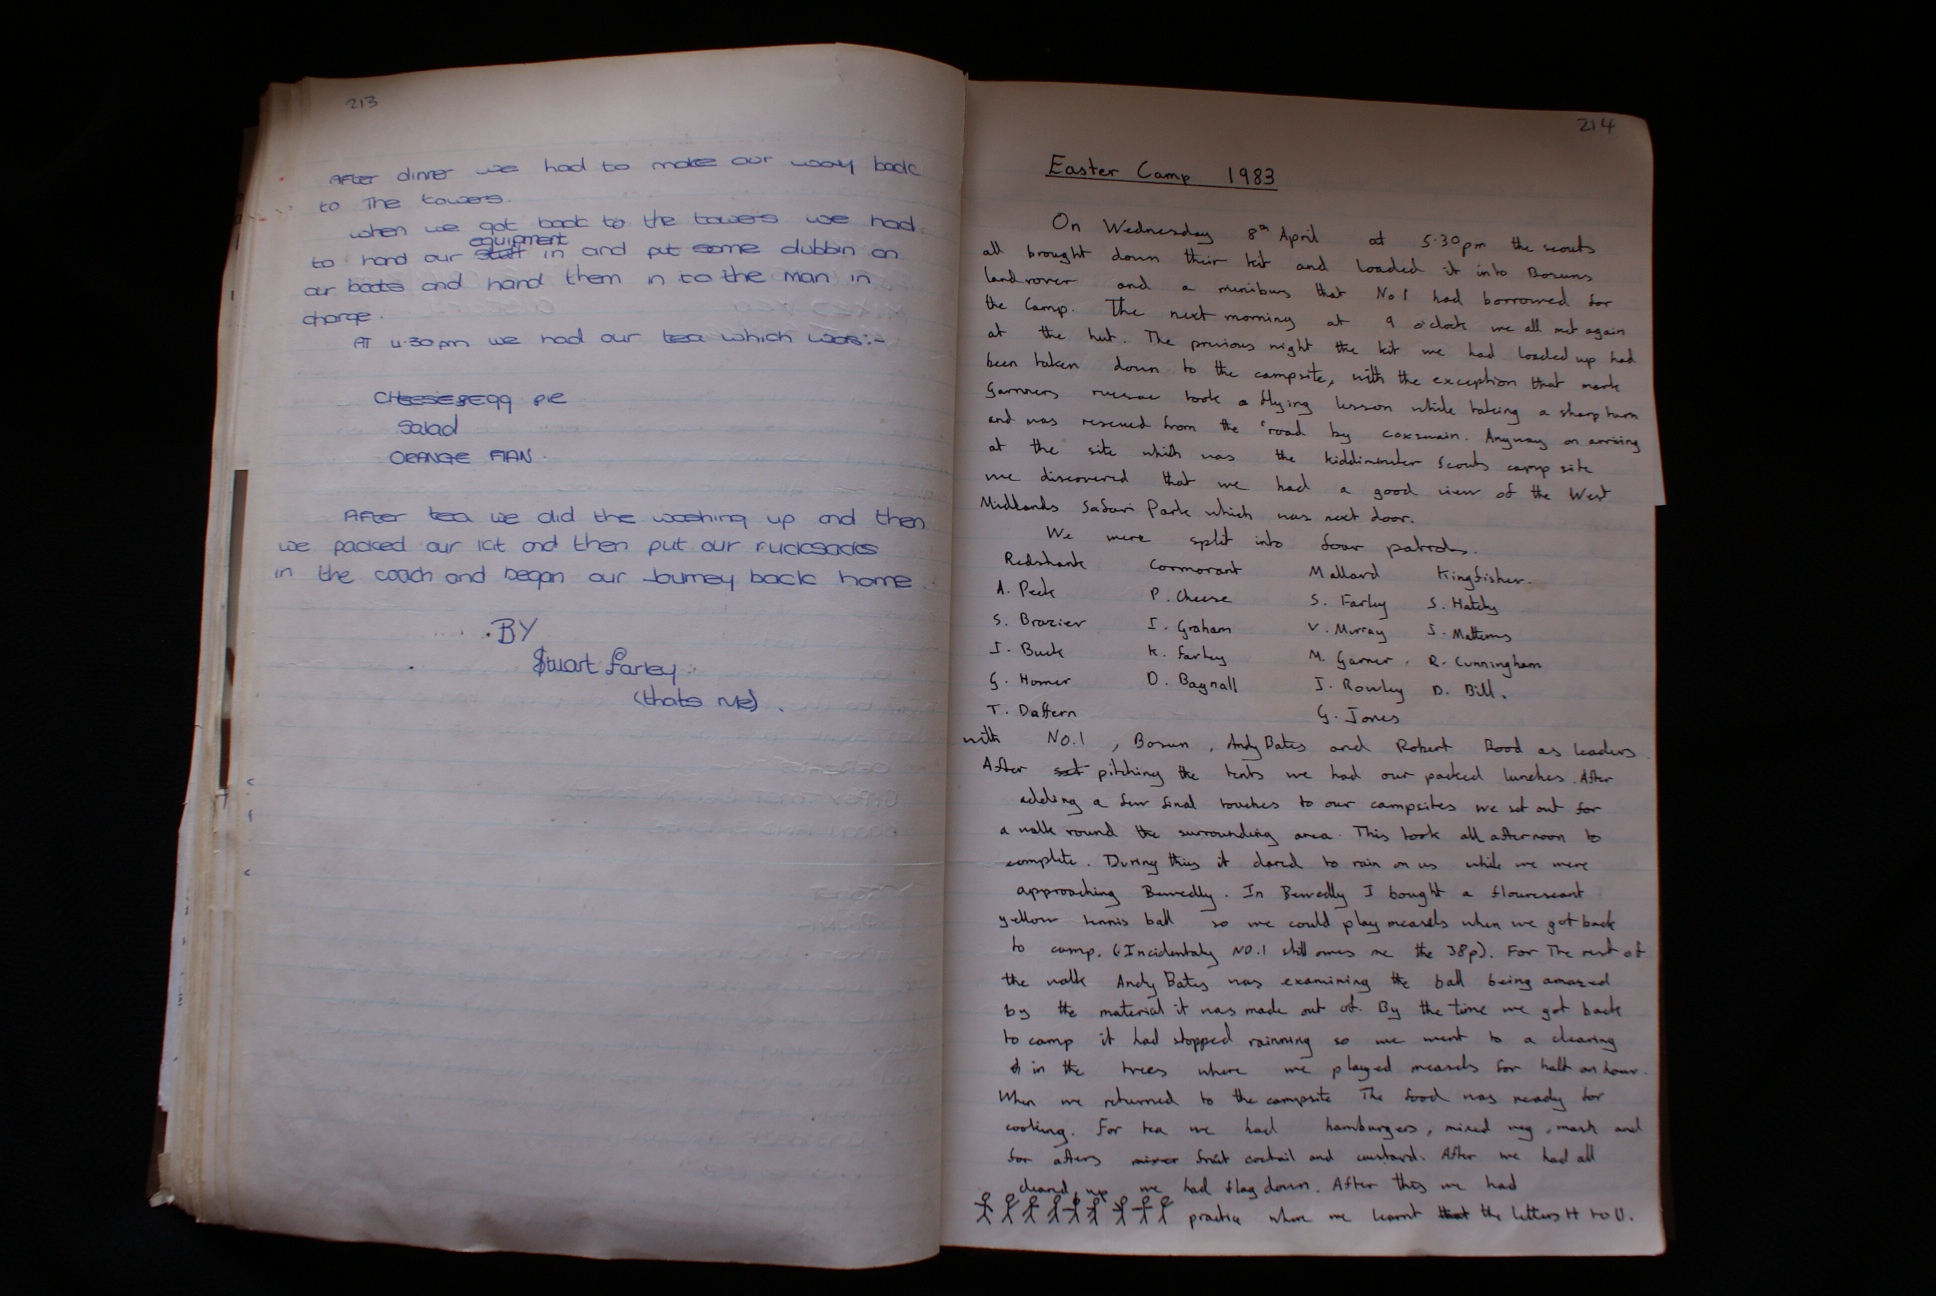 213
After dinner we had to make our way back
to The towers.
when we got back to the towers we had
equipment
to hand our stuff in and put some dubbin on
our boots and hand them in to the man in
charge.
AT 4.30pm we had our tea which was:-
CHeese egg pie
Salad
ORANGE FlAN.
After tea we did the washing up and then
we packed our kit and then put our rucksacks
in the coach and began our Journey back home.
BY
Stuart Farley
(thats Me).
214
Easter Camp 1983
On Wednesday 8th April at 5.30pm the scouts
all brought down their kit and loaded it into Bosuns
landrover and a minibus that No 1 had borrowed for
the Camp. The next morning at 9 o'clock we all met again
at the hut. The previous night the kit we had loaded up had
been taken down to the campsite, with the exception that mark
Garners rucsac took a flying lesson while taking a sharp turn
and was rescued from the road by coxswain. Anyway on arriving
at the site which was the kiddiminster Scouts camp site
we discovered that we had a good view of the West
Midlands Safari Park which was next door.
We were split into four patrols.
Redshank Cormorant Mallard Kingfisher.
A. Peck P. Cheese S. Farley S. Hatchy
S. Brazier I. Graham V. Murray J. Mattems
I. Buck K. Farley M. Garner. R. Cunningham
G. Homer D. Bagnall I. Rowley D. Bill.
T. Daffern G. Jones
with NO.1, Bosun, Andy Bates and Robert Rood as leaders.
After set pitching the tents we had our packed lunches. After
adding a few final touches to our campsites we set out for
a walk round the surrounding area. This took all afternoon to
complete. During this it dared to rain on us while we were
approaching Bewedly. In Bewedly I bought a flourescant
yellow tennis ball so we could play measels when we got back
to camp. (Incidentaly NO.1 still owes me the 38p). For The rest of
the walk Andy Bates was examining the ball being amazed
by the material it was made out of. By the time we got back
to camp it had stopped rainning so we went to a clearing
of in the trees where we played measels for half an hour.
When we returned to the campsite The food was ready for
cooking. For tea we had hamburgers, mixed veg, mash and
for afters mixer fruit coctail and custard. After we had all
cleared up we had flag down. After this we had
practice where we learnt that the letters H to U.